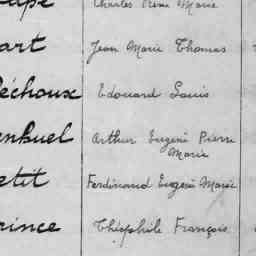 Charles Rémi Marie
art Jean Marie Thomas
échoux Edouard Louis
nhuel Arthur Eugène Pierre
Marie
etit Ferdinand Eugène Marie
rince Théophile François